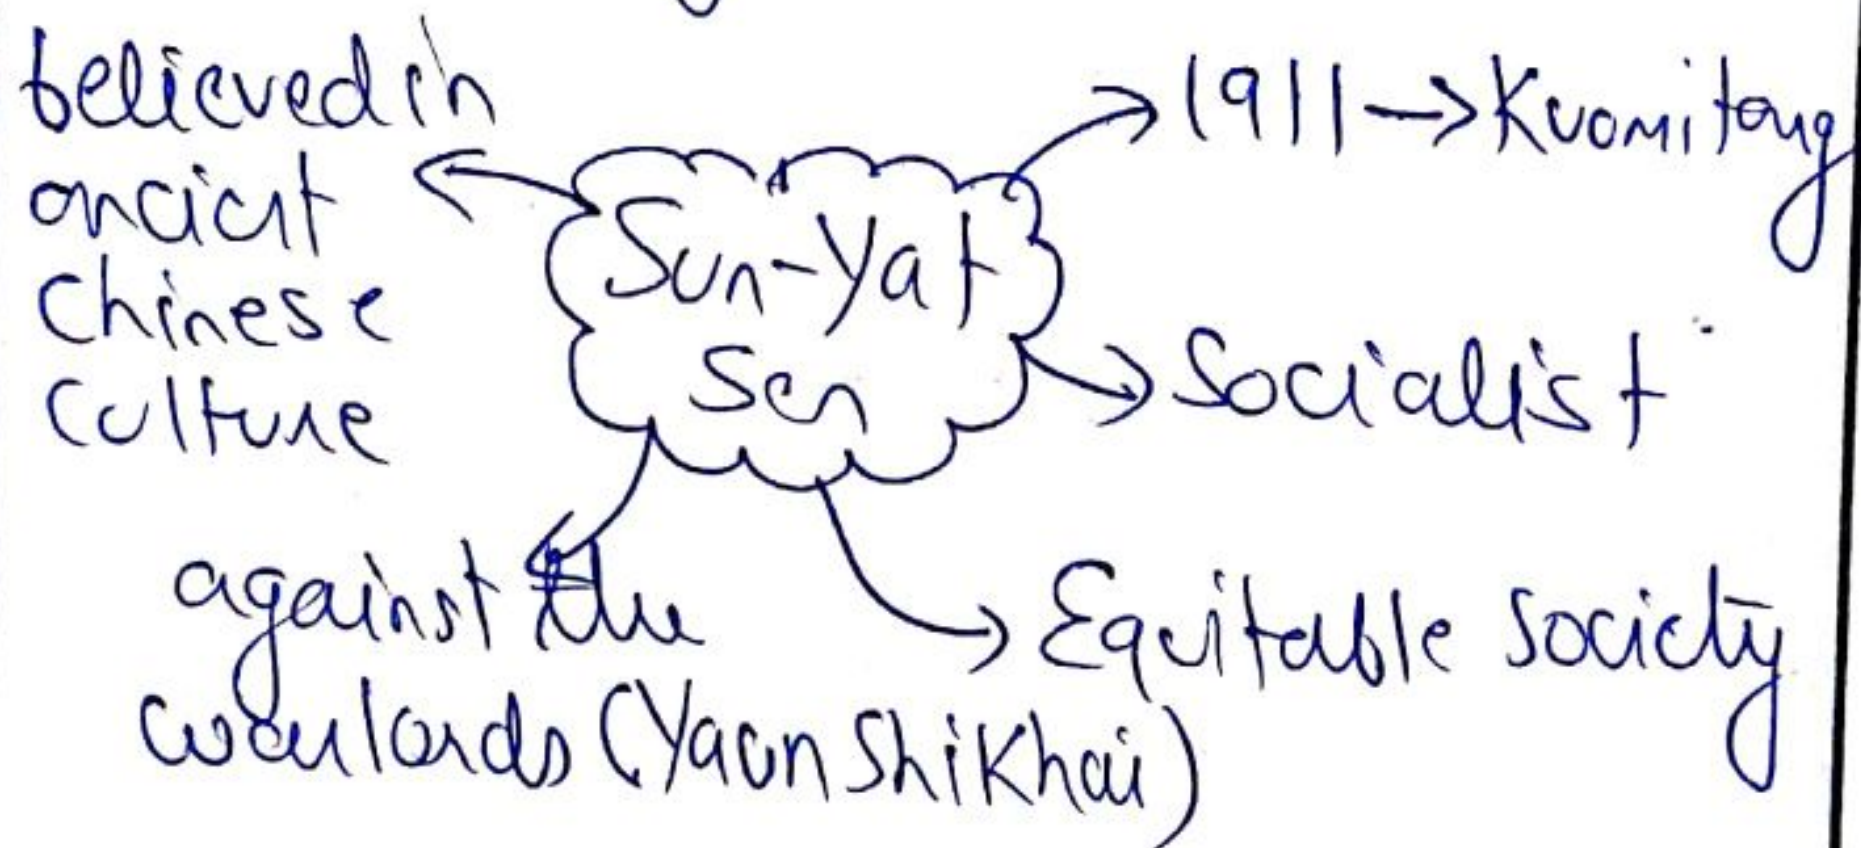 believed in
ancient
Chinese
Culture
1911 → Kuomitang
Sun-Yat
Sen
Socialist
Equitable society
against the
warlords (Yaun Shi Khai)